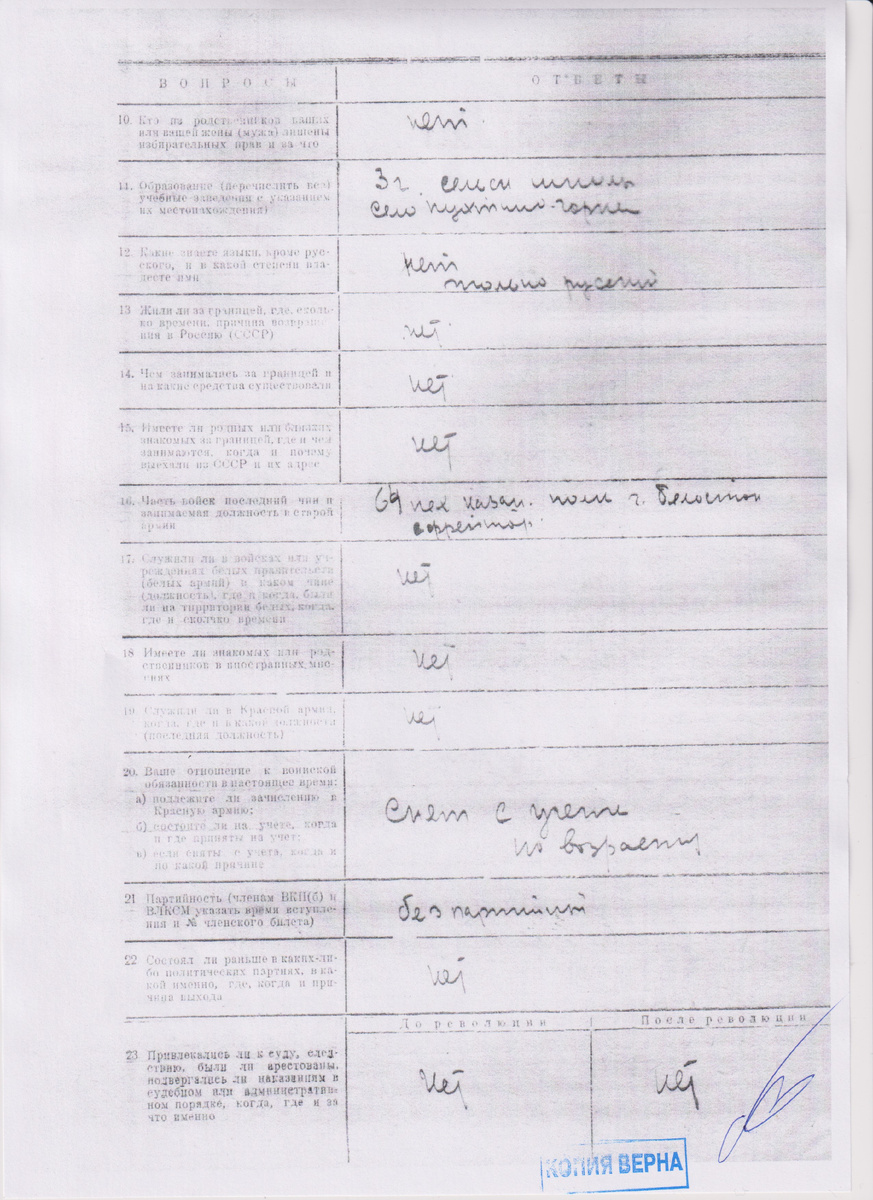 ВОПРОСЫ
ОТВЕТЫ
10. Кто из родственников ваших
или вашей жены (мужа) лишены
избирательных прав и за что
нет
11. Образование (перечислить все
учебные заведения с указанием
их местонахождения)
3 г. сельск школы
село
12. Какие знаете языки, кроме рус-
ского, и в какой степени вла-
деете ими
нет
только русский
13 Жили ли за границей, где, сколь-
ко времени, причина возвраще-
ния в Россию (СССР)
нет
14. Чем занимались за границей и
на какие средства существовали
нет
15. Имеете ли родных или близких
знакомых за границей, где и чем
занимаются, когда и почему
выехали из СССР и их адрес
нет
16. Часть войск последний чин и
занимаемая должность в старой
армии
69 пех казан. полк г. Белосток
ефрейтор.
17. Служили ли в войсках или уч-
реждениях белых правительств
(белых армий) в каком чине
(должность), где и когда, были
ли на территории белых, когда,
где и сколько времени
нет
18 Имеете ли знакомых или род-
ственников в иностранных мис-
сиях
нет
19. Служили ли в Красной армии,
когда, где и в какой должности
(последняя должность)
нет
20. Ваше отношение к воинской
обязанности в настоящее время:
а) подлежите ли зачислению в
Красную армию;
б) состоите ли на учете, когда
и где приняты на учет;
в) если сняты с учета, когда и
по какой причине
Снет с учета
по возрасту
21 Партийность (членам ВКП(б) и
ВЛКСМ указать время вступле-
ния и № членского билета)
без партийный
22 Состоял ли раньше в каких-ли-
бо политических партиях, в ка-
кой именно, где, когда и при-
чина выхода
нет
До революции
После революции
23 Привлекались ли к суду, след-
ствию, были ли арестованы,
подвергались ли наказаниям в
судебном или административ-
ном порядке, когда, где и за
что именно
Нет
нет
КОПИЯ ВЕРНА